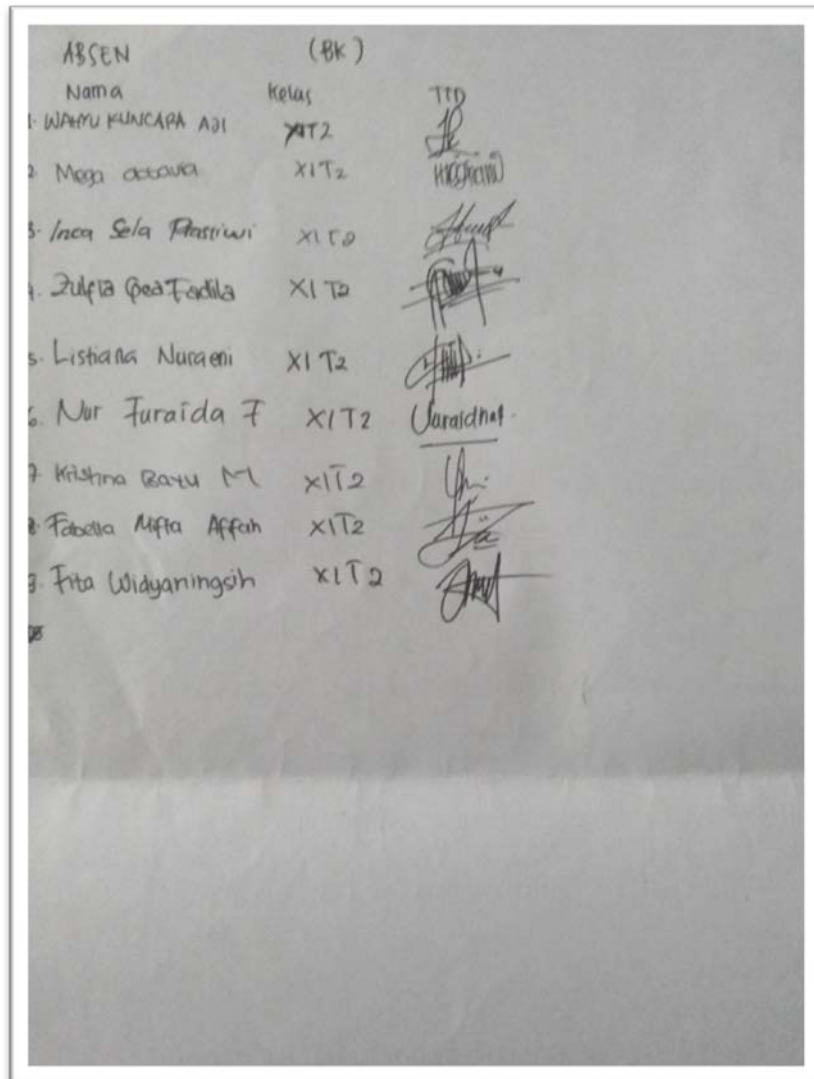 ABSEN (BK)
Nama Kelas TTD
1. WAHYU KUNCARA AJI XIT2
2. Mega octavia XIT2
3. Inca Sela Prastiwi XI T2
4. Zulfia Fadila XI T2
5. Listiana Nuraeni XI T2
6. Nur Furaida F XIT2
7. Krishna Bayu M XIT2
8. Fabella Mifta Affah XIT2
9. Fita Widyaningsih XIT2